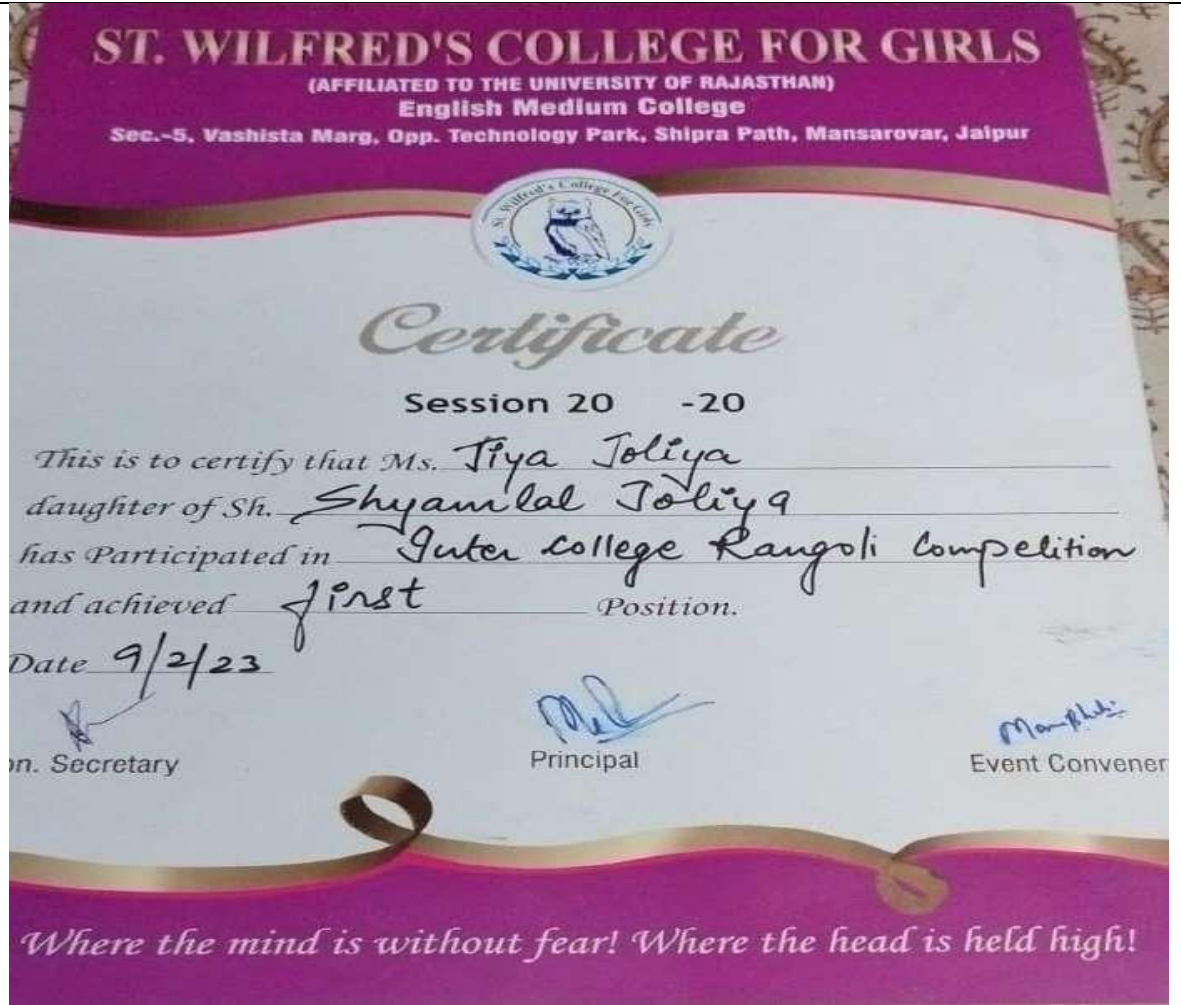 ST. WILFRED'S COLLEGE FOR GIRLS
(AFFILIATED TO THE UNIVERSITY OF RAJASTHAN)
English Medium College
Sec.-5, Vashista Marg, Opp. Technology Park, Shipra Path, Mansarovar, Jaipur
St. Wilfred's College For Girls
Certificate
Session 20 -20
This is to certify that Ms. Jiya Joliya
daughter of Sh. Shyamlal Joliya
has Participated in Inter college Rangoli Competition
and achieved first Position.
Date 9/2/23
on. Secretary Principal Event Convener
Where the mind is without fear! Where the head is held high!